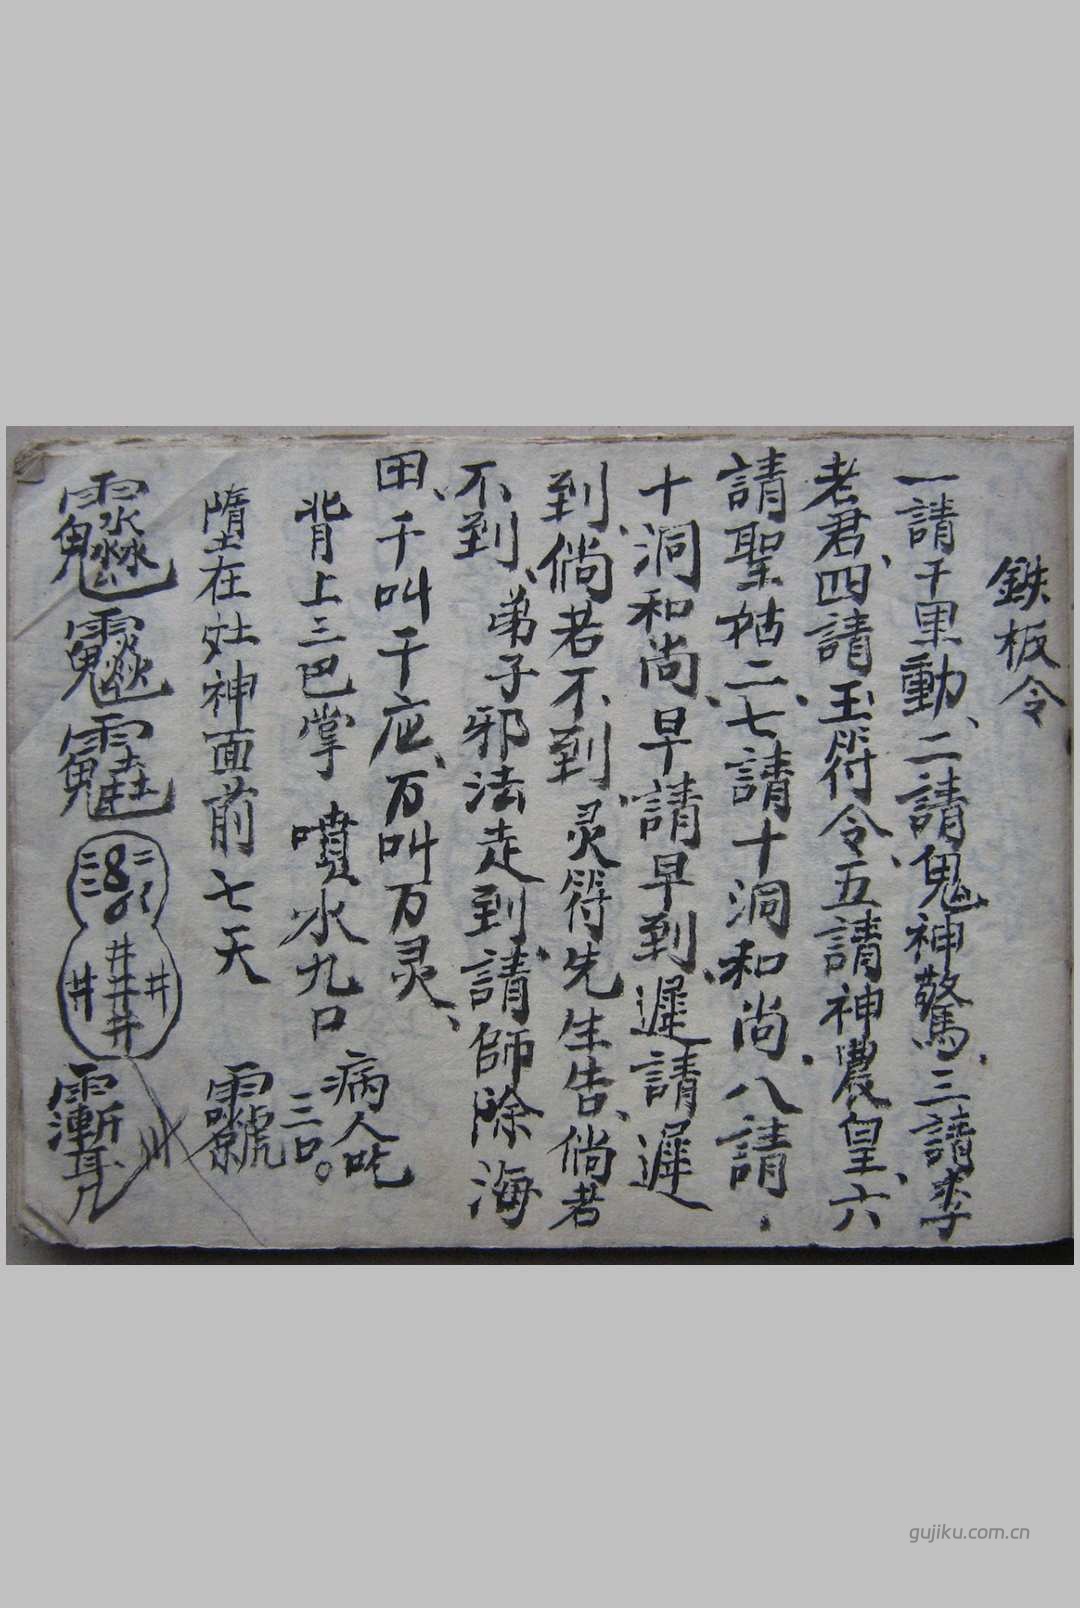 鉄板令
一請千里動、二請鬼神驚、三請李
老君、四請玉符令、五請神農皇、六
請聖姑二、七請十洞和尚、八請
十洞和尚、早請早到、遲請遲
到、倘若不到灵符先生告、倘若
不到、弟子邪法走到、請師除海
田、千叫千应、万叫万灵、
背上三巴掌 噴水九口 病人吃三口。
在灶神面前七天
gujiku.com.cn